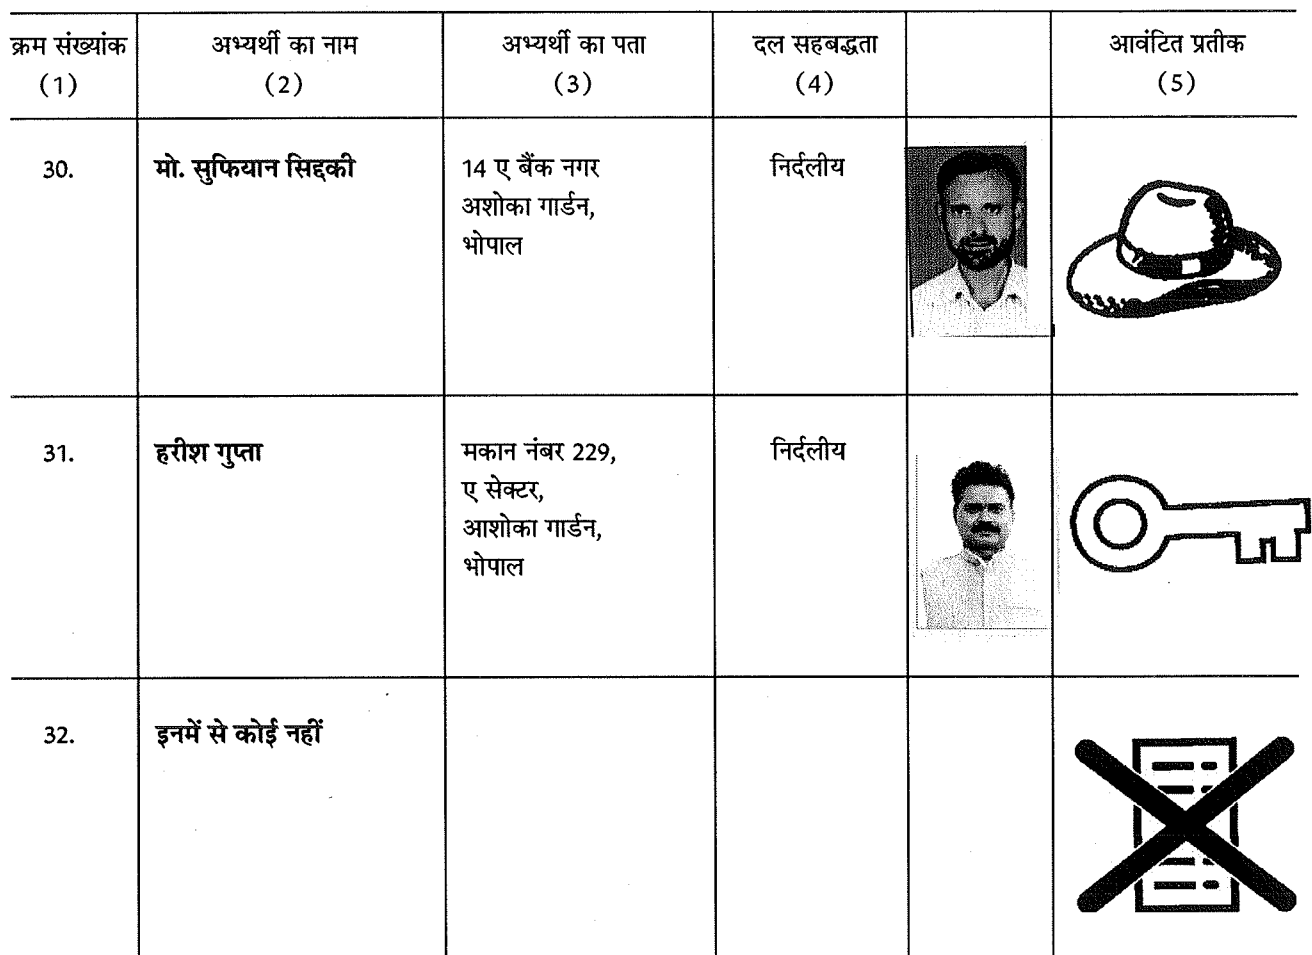 क्रम संख्यांक
(1)
अभ्यर्थी का नाम
(2)
अभ्यर्थी का पता
(3)
दल सहबद्धता
(4)
आवंटित प्रतीक
(5)
30.
मो. सुफियान सिद्दकी
14 ए बैंक नगर
अशोका गार्डन,
भोपाल
निर्दलीय
31.
हरीश गुप्ता
मकान नंबर 229,
ए सेक्टर,
आशोका गार्डन,
भोपाल
निर्दलीय
32.
इनमें से कोई नहीं